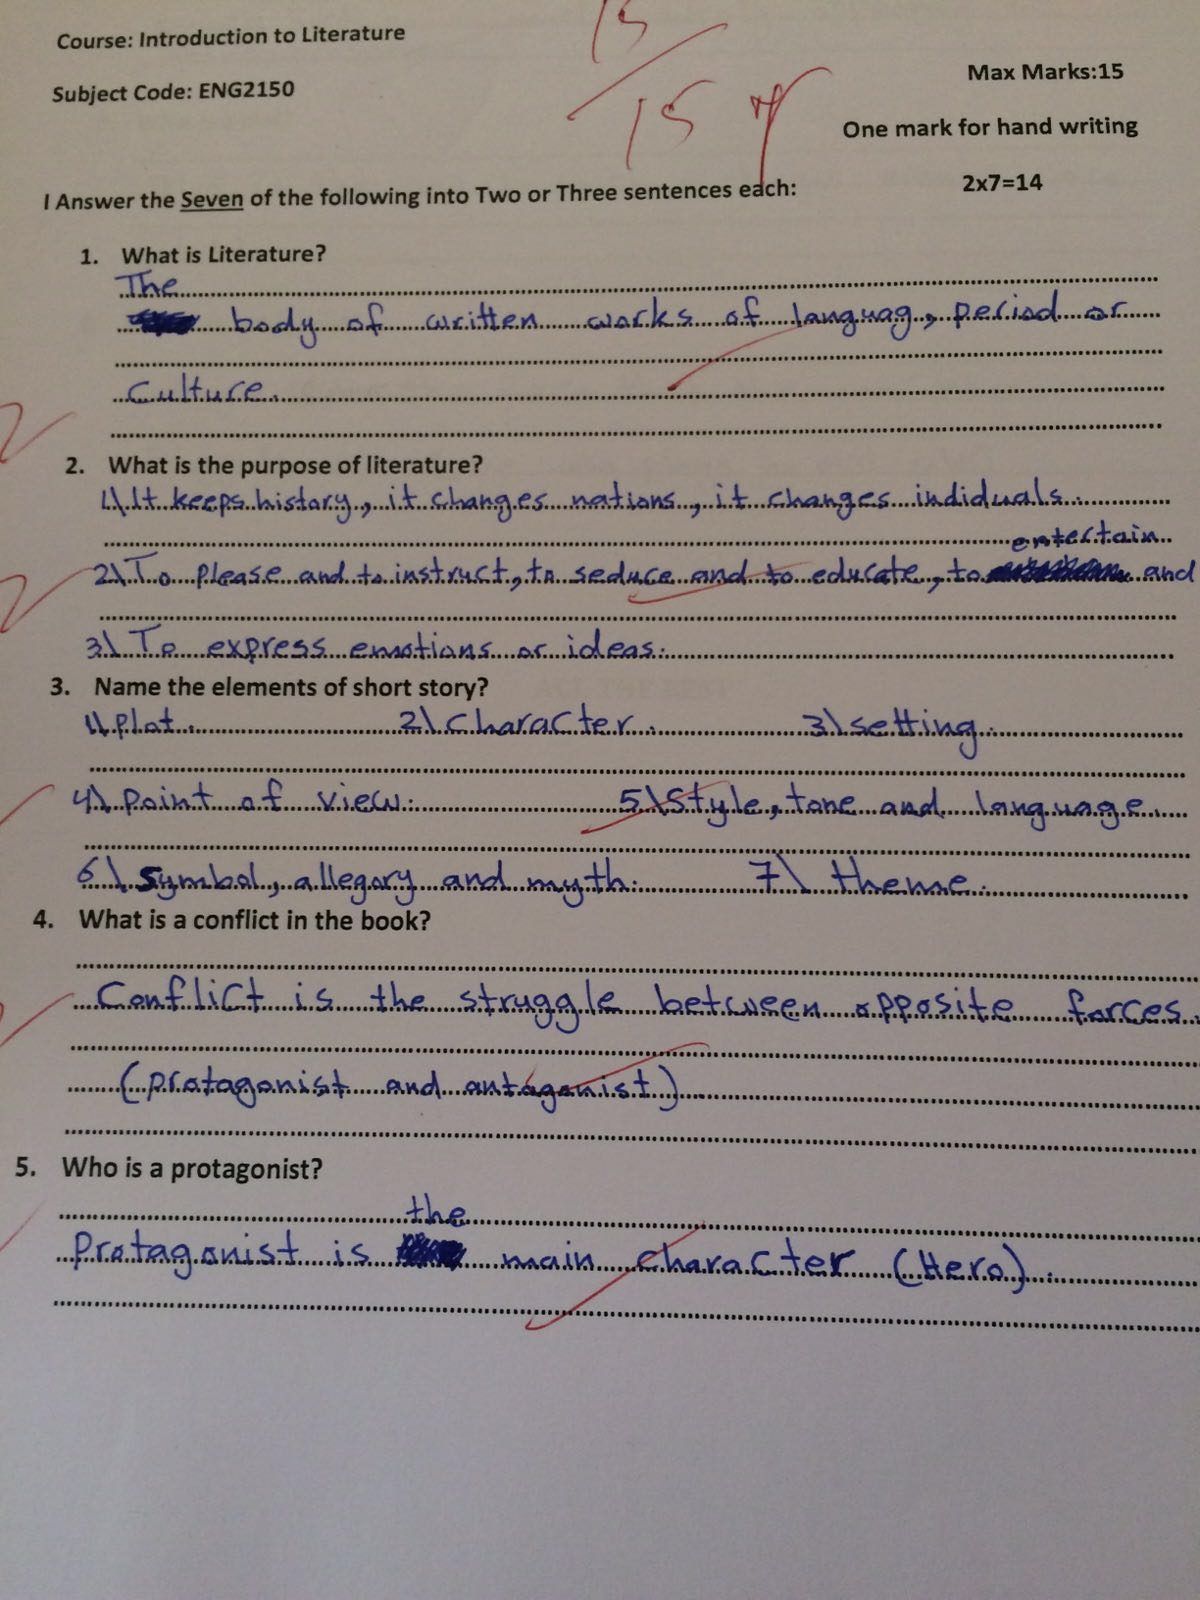 Course: Introduction to Literature
15
Subject Code: ENG2150
15
Max Marks:15
One mark for hand writing
I Answer the Seven of the following into Two or Three sentences each:
2x7=14
1. What is Literature?
The
body of written works of languag, period or
Culture.
2
2. What is the purpose of literature?
1\ It keeps history, it changes nations, it changes indiduals.
entertain
2\ To please and to instruct, to seduce and to educate, to and
2
3\ To express emotions or ideas.
3. Name the elements of short story?
1\ plot. 2\ Character. 3\ setting.
4\ Point of view. 5\ Style, tone and language.
6\ Symbol, allegory and myth. 7\ theme.
4. What is a conflict in the book?
Conflict is the struggle between opposite forces.
(protagonist and antagonist)
5. Who is a protagonist?
the
Protagonist is main character (Hero).